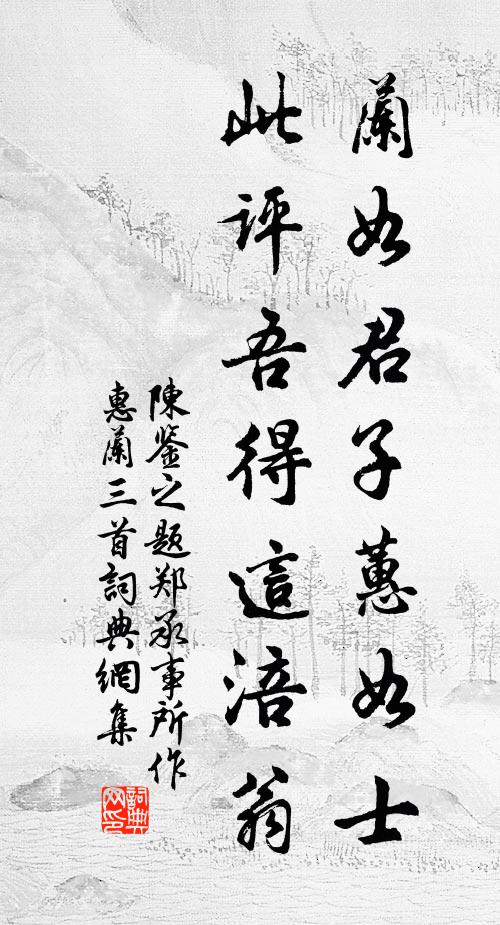 蘭如君子蕙如士
此評吾得這涪翁
陳鉴之题郑承事所作
惠蘭三首詞典網集
詞典
网印